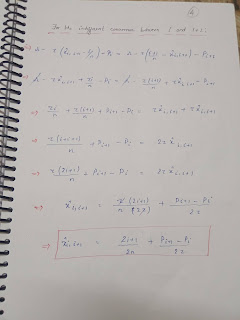 ④
For the indifferent consumer between i and i+1:
⇒ s - t (x̂i,i+1 - i/n) - Pi = s - t ((i+1)/n - x̂i,i+1) - Pi+1
s - t x̂i,i+1 + ti/n - Pi = s - t(i+1)/n + t x̂i,i+1 - Pi+1
⇒ ti/n + t(i+1)/n + Pi+1 - Pi = t x̂i,i+1 + t x̂i,i+1
⇒ t(i+i+1)/n + Pi+1 - Pi = 2t x̂i,i+1
⇒ t(2i+1)/n + Pi+1 - Pi = 2t x̂i,i+1
⇒ x̂i,i+1 = t(2i+1)/n(2t) + (Pi+1 - Pi)/2t
⇒ x̂i,i+1 = (2i+1)/2n + (Pi+1 - Pi)/2t